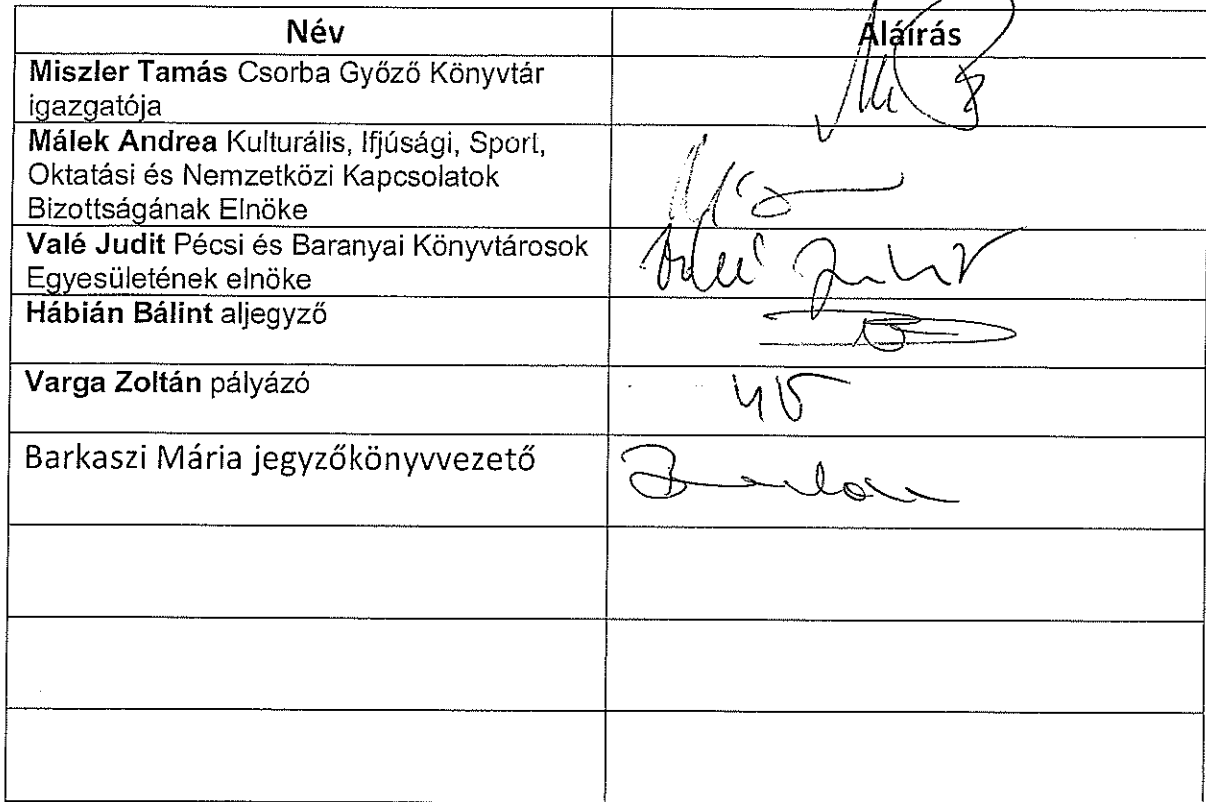 Név
Aláírás
Miszler Tamás Csorba Győző Könyvtár
igazgatója
Málek Andrea Kulturális, Ifjúsági, Sport,
Oktatási és Nemzetközi Kapcsolatok
Bizottságának Elnöke
Valé Judit Pécsi és Baranyai Könyvtárosok
Egyesületének elnöke
Hábián Bálint aljegyző
Varga Zoltán pályázó
Barkaszi Mária jegyzőkönyvvezető